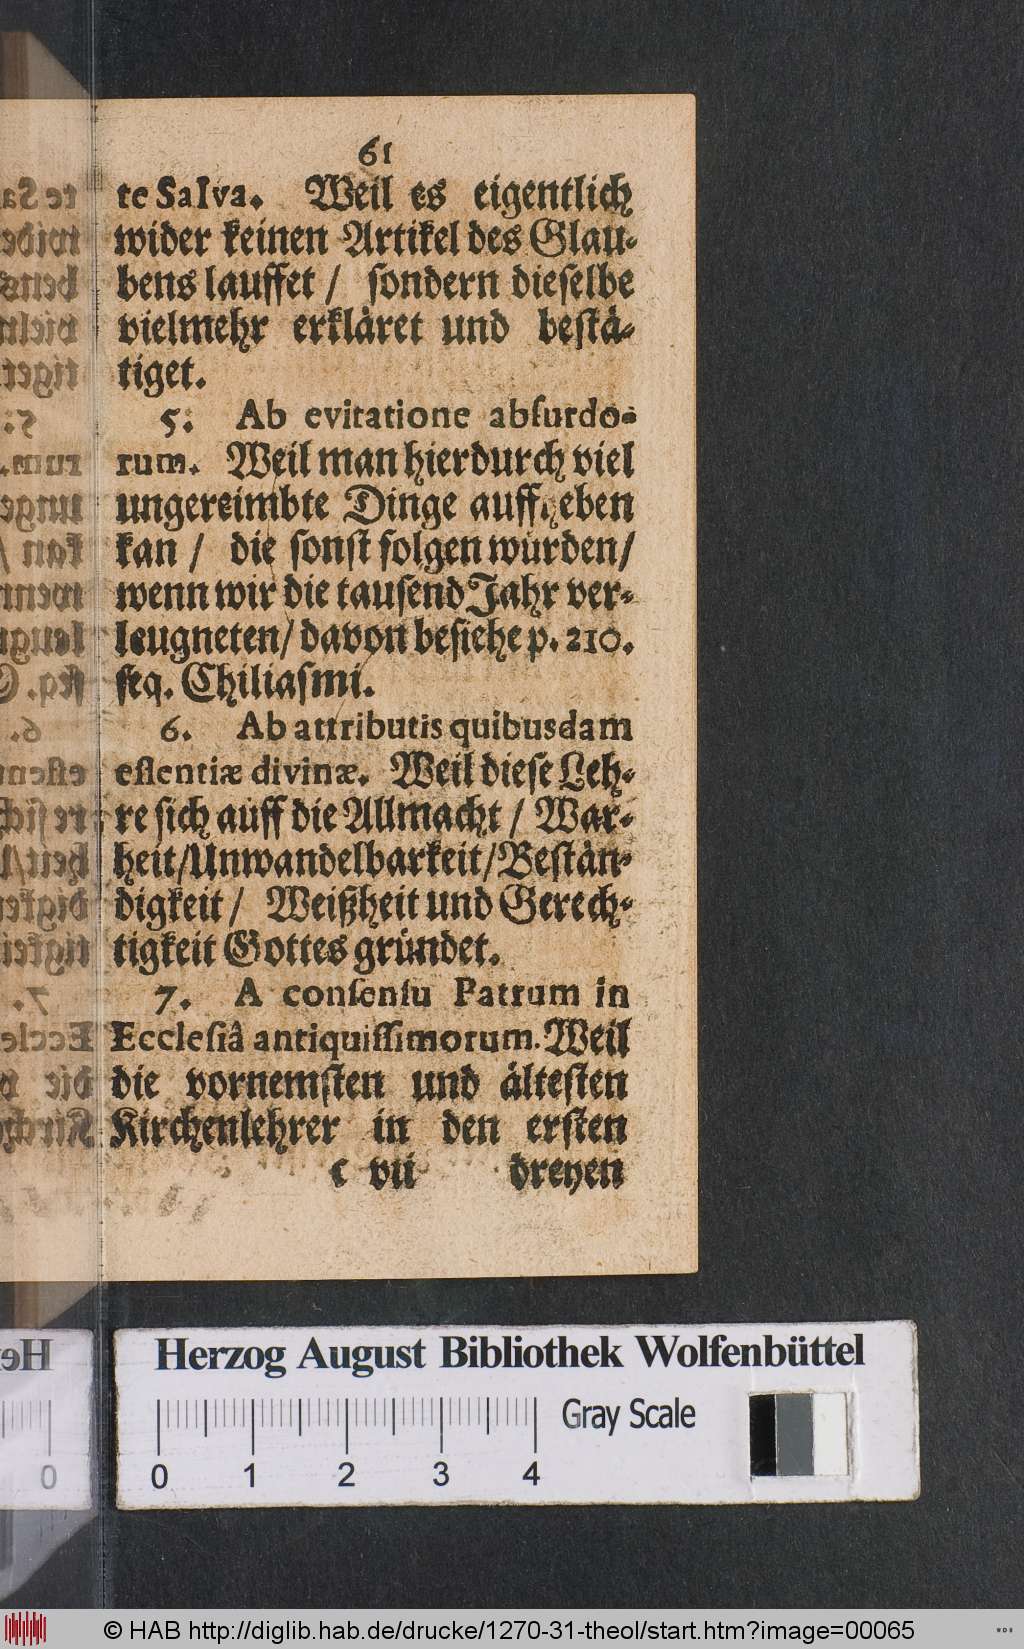 61
te Salva. Weil es eigentlich
wider keinen Artikel des Glau-
bens lauffet / sondern dieselbe
vielmehr erkläret und bestä-
tiget.
5. Ab evitatione absurdo-
rum. Weil man hierdurch viel
ungereimbte Dinge auffheben
kan / die sonst folgen würden/
wenn wir die tausend Jahr ver-
leugneten/ davon besiehe p. 210.
seq. Chiliasmi.
6. Ab attributis quibusdam
essentiæ divinæ. Weil diese Leh-
re sich auff die Allmacht / War-
heit/Unwandelbarkeit/Bestän-
digkeit / Weißheit und Gerech-
tigkeit Gottes gründet.
7. A consensu Patrum in
Ecclesiâ antiquissimorum. Weil
die vornemsten und ältesten
Kirchenlehrer in den ersten
c vii dreyen
Herzog August Bibliothek Wolfenbüttel
Gray Scale
0 1 2 3 4
© HAB http://diglib.hab.de/drucke/1270-31-theol/start.htm?image=00065